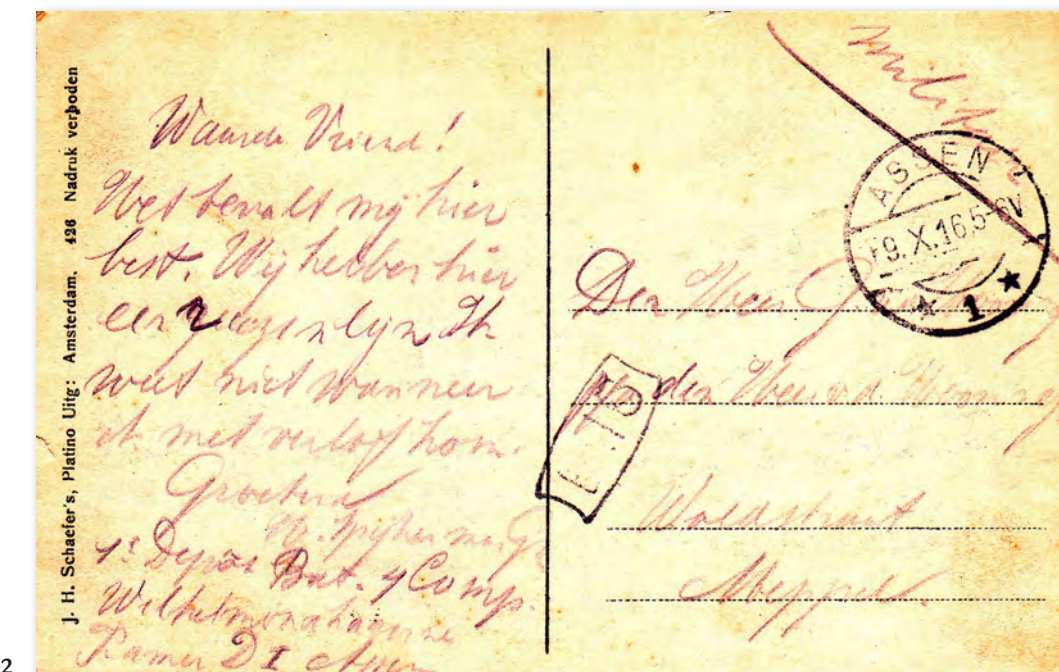 J. H. Schaefer's, Platino Uitg: Amsterdam. 426 Nadruk verboden
Waarde Vriend!
Het bevalt mij hier
best. Wij hebben hier
een lijn Ik
weet niet wanneer
ik met verlof kom.
Groetend
Depot Bat. 4 Comp.
Wilhelmina
Kamer D I Assen
milit
ASSEN 2
9.X.16.5-6V
* 1 *
Den Heer
den Heer v.d.
Woldstraat
Meppel.
2